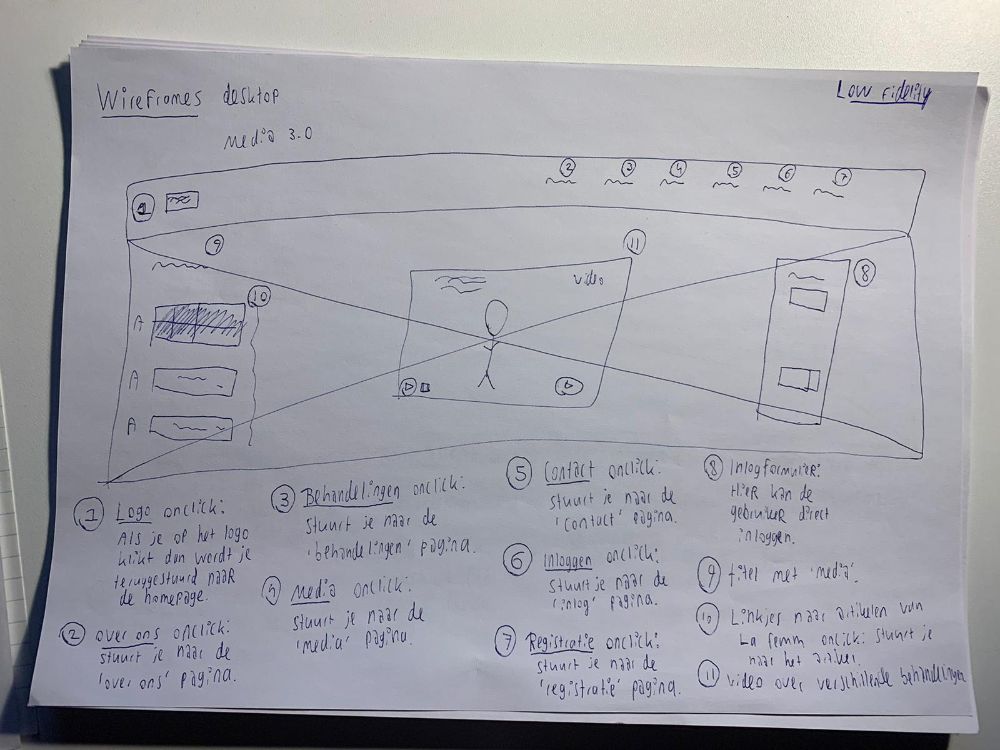 Wireframes desktop
Low fidelity
Media 3.0
2 3 4 5 6 7
1
9
11
video
8
10
A
A
A
1 Logo onclick:
Als je op het logo
klikt dan wordt je
teruggestuurd naar
de homepage.
2 over ons onclick:
stuurt je naar de
'over ons' pagina.
3 Behandelingen onclick:
stuurt je naar de
'behandelingen' pagina.
4 Media onclick:
stuurt je naar de
'media' pagina.
5 Contact onclick:
stuurt je naar de
'contact' pagina.
6 Inloggen onclick:
stuurt je naar de
'inlog' pagina.
7 Registratie onclick:
stuurt je naar de
'registratie' pagina.
8 Inlogformulier:
Hier kan de
gebruiker direct
inloggen.
9 titel met 'media'.
10 Linkjes naar artikelen van
La femm onclick: stuurt je
naar het artikel.
11 video over verschillende behandelingen